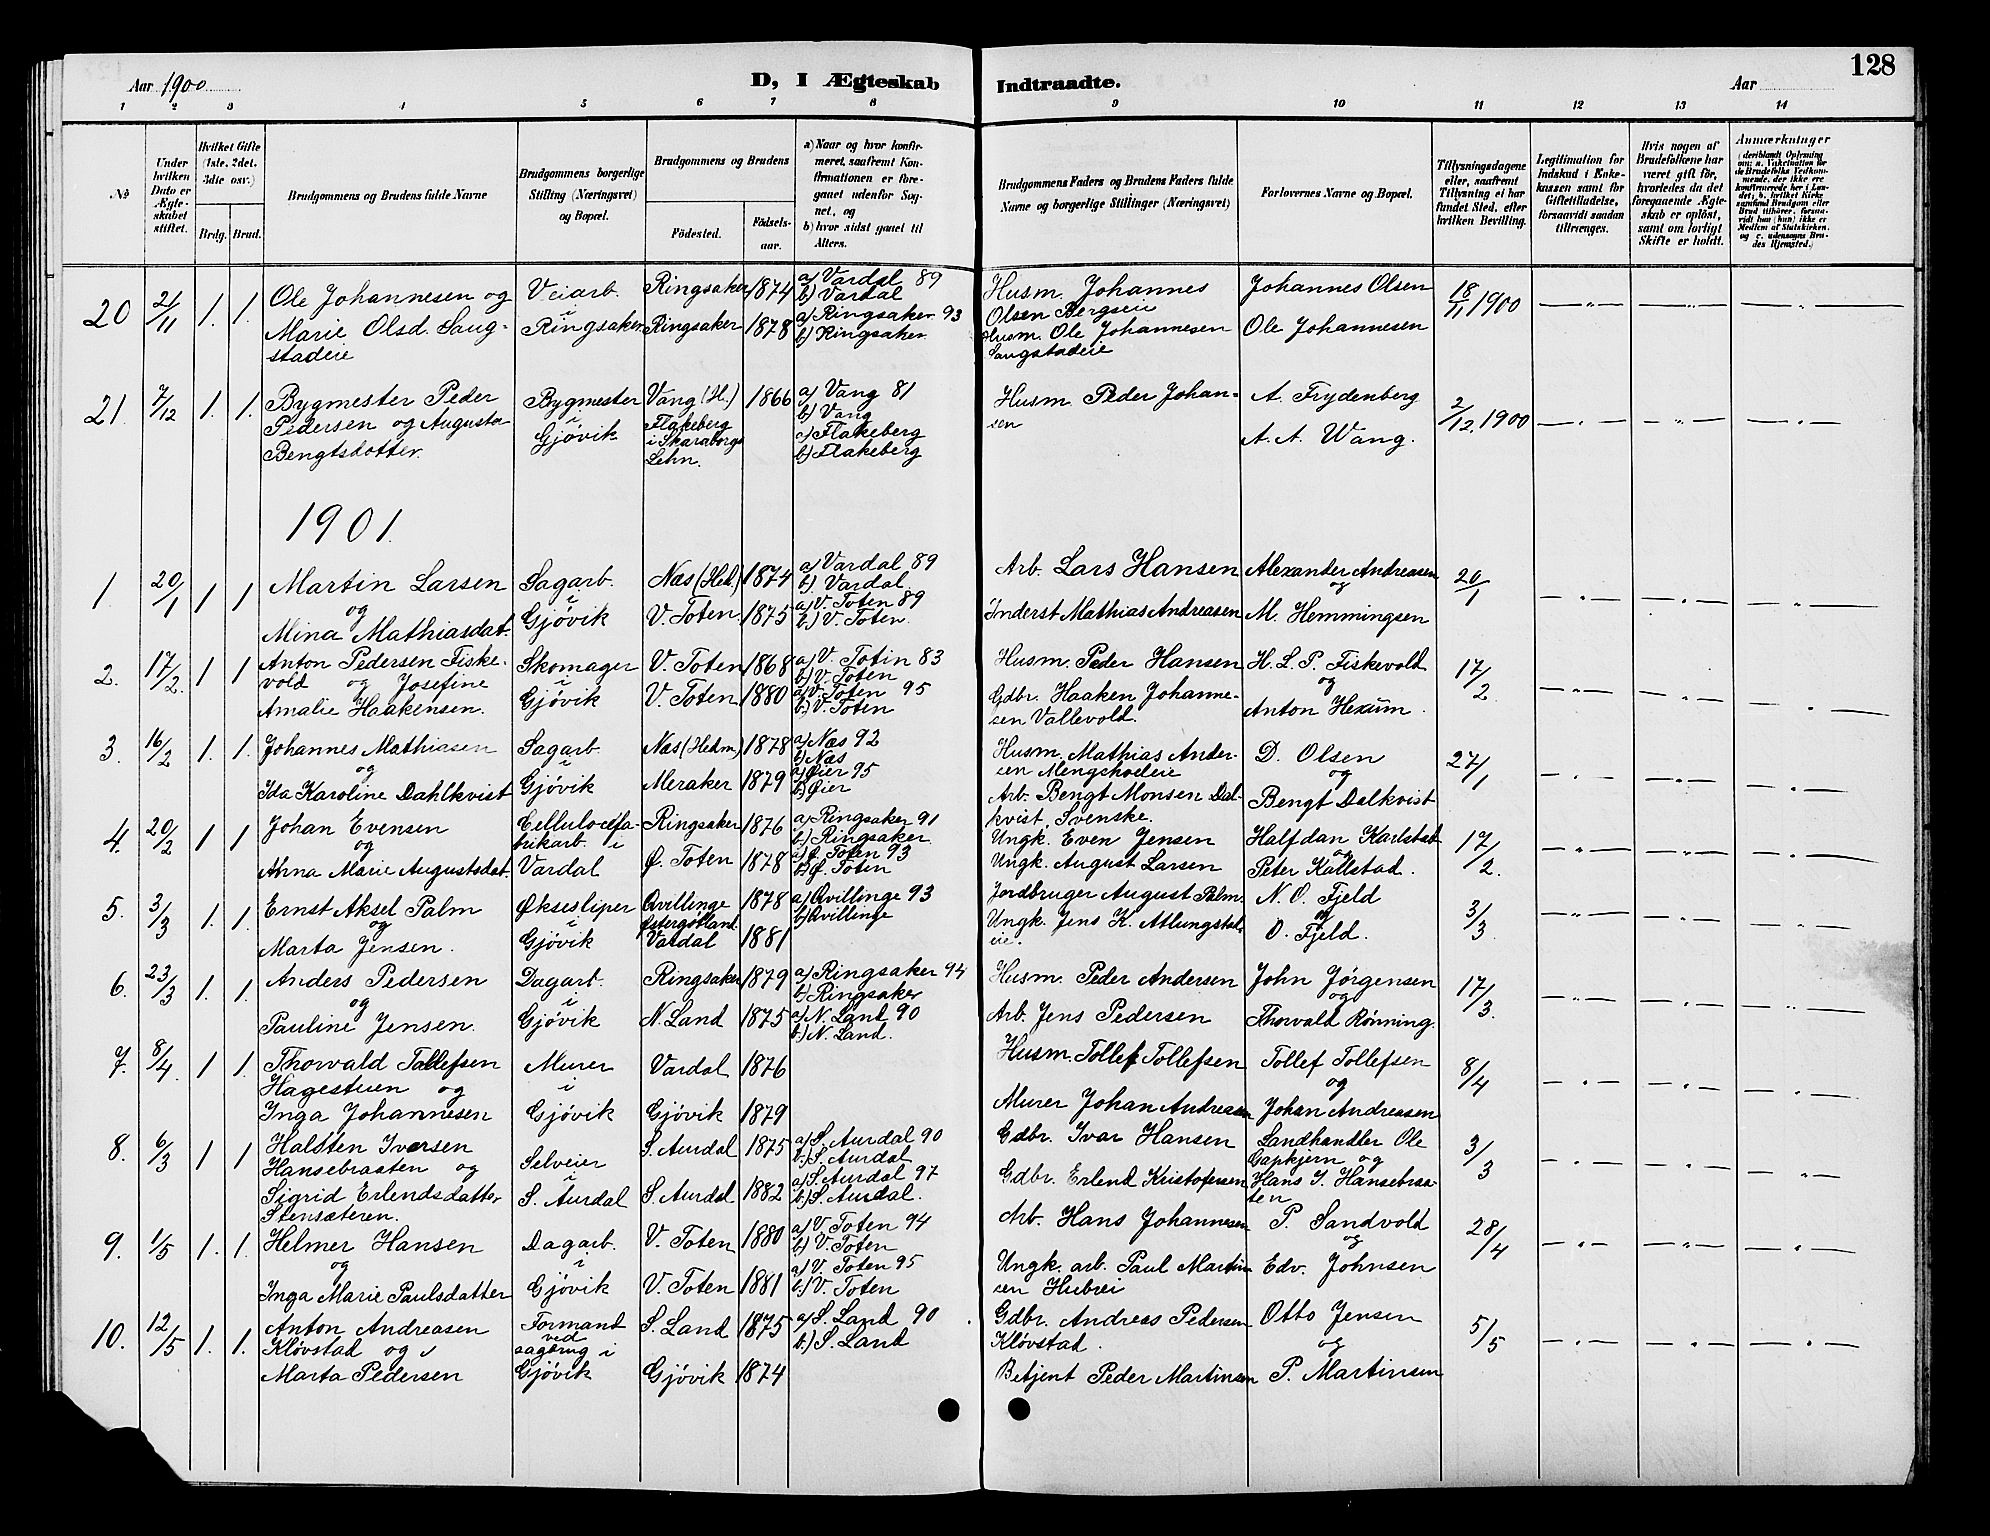 128
Aar 1900
D, I Ægteskab
Indtraadte.
Aar
1 2 3 4 5 6 7 8 9 10 11 12 13 14
No
Under hvilken Dato er Ægteskabet stiftet.
Hvilket Gifte (1ste, 2det, 3die osv.)
Brdg. Brud.
Brudgommens og Brudens fulde Navne
Brudgommens borgerlige Stilling (Næringsvei) og Bopæl.
Brudgommens og Brudens
Födested.
Födselsaar.
a) Naar og hvor konfirmeret, saafremt Konfirmationen er foregaaet udenfor Sognet, og
b) hvor sidst gaaet til Alters.
Brudgommens Faders og Brudens Faders fulde Navne og borgerlige Stillinger (Næringsvei)
Forlovernes Navne og Bopæl.
Tillysningsdagene eller, saafremt Tillysning ei har fundet Sted, efter hvilken Bevilling.
Legitimation for Indskud i Enkekassen samt for Giftetilladelse, forsaavidt saadan tiltrænges.
Hvis nogen af Brudefolkene har været gift för, hvorledes da det foregaaende Ægteskab er oplöst, samt om lovligt Skifte er holdt.
Anmærkninger
20 21/11 1. 1.
Ole Johannesen og
Marie Olsd. Saug-
stadeie
Veiarb.
i
Ringsaker
Ringsaker 1874
Ringsaker 1878
a) Vardal 89
b) Vardal
a) Ringsaker 93
b) Ringsaker
Husm. Johannes
Olsen Bergseie
Husm. Ole Johannesen
Saugstadeie
Johannes Olsen
Ole Johannesen
18/11 1900
21. 7/12 1. 1.
Bygmester Peder
Pedersen og Augusta
Bengtsdotter.
Bygmester
i
Gjøvik
Vang (H.) 1866
Flakeberg
i Skaraborgs
Lehn.
a) Vang 81
b) Vang
a) Flakeberg
b) Flakeberg
Husm. Peder Johan-
sen
A. Frydenberg
A. A. Wang.
2/12. 1900
1901.
1. 20/1 1 1
Martin Larsen
og
Mina Mathiasdat.
Sagarb.
i
Gjøvik
Næs (Hed.) 1874
V. Toten. 1875
a) Vardal 89
b) Vardal.
a) V. Toten 89
b) V. Toten.
Arb. Lars Hansen
Inderst Mathias Andreasen
Alexander Andreasen
og
M. Hemmingsen
20/1
2. 17/2. 1 1
Anton Pedersen Fiske-
vold og Josefine
Amalie Haakensen.
Skomager
i
Gjøvik
V. Toten 1868
V. Toten 1880
a) V. Toten 83
b) V. Toten
a) V. Toten 95
b) V. Toten
Husm. Peder Hansen
Gdbr. Haaken Johanne-
sen Vallevold.
H. L. P. Fiskevold
og
Anton Hexum.
17/2
3. 16/2 1. 1.
Johannes Mathiasen
og
Ida Karoline Dahlkvist
Sagarb.
i
Gjøvik
Næs (Hedm) 1878
Meraker 1879
a) Næs 92
b) Næs
a) Øier 95
b) Øier
Husm. Mathias Ander-
sen Mengshoeleie
Arb. Bengt Monsen Dal-
kvist, Svenske.
D. Olsen
og
Bengt Dalkvist
27/1
4. 20/2 1 1
Johan Evensen
og
Anna Marie Augustsdat.
Cellulosefa-
brikarb. i
Vardal
Ringsaker 1876
Ø. Toten 1878
a) Ringsaker 91
b) Ringsaker
a) Ø. Toten 93
b) Ø. Toten
Ungk. Even Jensen
Ungk. August Larsen
Halfdan Karlstad
og
Peter Kallstad.
17/2.
5. 3/3 1. 1.
Ernst Aksel Palm
og
Marta Jensen.
Øksesliper
i
Gjøvik
Qvillinge 1878
Østergötland.
Vardal 1881
a) Qvillinge 93
b) Qvillinge
Jordbruger August Palm.
Ungk. Jens K. Atlungstad-
eie.
N. O. Fjeld
og
O. Fjeld.
3/3
6. 23/3 1. 1.
Anders Pedersen
og
Pauline Jensen.
Dagarb.
i
Gjøvik
Ringsaker 1879
N. Land 1875
a) Ringsaker 94
b) Ringsaker
a) N. Land 90
b) N. Land.
Husm. Peder Andersen
Arb. Jens Pedersen
John Jørgensen
og
Thorvald Rønning.
17/3.
7. 8/4. 1 1.
Thorvald Tollefsen
Hagestuen og
Inga Johannesen
Murer
i
Gjøvik
Vardal 1876
Gjøvik 1879
Husm. Tollef Tollefsen
Murer Johan Andreasen
Tollef Tollefsen
og
Johan Andreasen
8/4
8. 6/3 1 1
Halsten Iversen
Hansebraaten og
Sigrid Erlendsdatter
Stensæteren.
Selveier
i
S. Aurdal
S. Aurdal 1875
S. Aurdal 1882
a) S. Aurdal 90
b) S. Aurdal
a) S. Aurdal 97
b) S. Aurdal.
Gdbr. Ivar Hansen
Gdbr. Erlend Kristofersen
Landhandler Ole
Gapkjern og
Hans I. Hansebraa-
ten
3/3
9. 1/5 1. 1.
Helmer Hansen
og
Inga Marie Paulsdatter
Dagarb.
i
Gjøvik
V. Toten 1880
V. Toten 1881
a) V. Toten 94
b) V. Toten
a) V. Toten 95
b) V. Toten
Arb. Hans Johannesen
Ungk. arb. Paul Martin-
sen Hubrei
P. Sandvold
og
Edv. Johnsen
28/4
10. 12/5 1. 1.
Anton Andreasen
Kløvstad og
Marta Pedersen
Formand
ved
sagbrug i
Gjøvik
S. Land 1875
Gjøvik 1874
a) S. Land 90
b) S. Land
Gdbr. Andreas Pedersen
Kløvstad.
Betjent Peder Martinsen
Otto Jensen
og
P. Martinsen
5/5